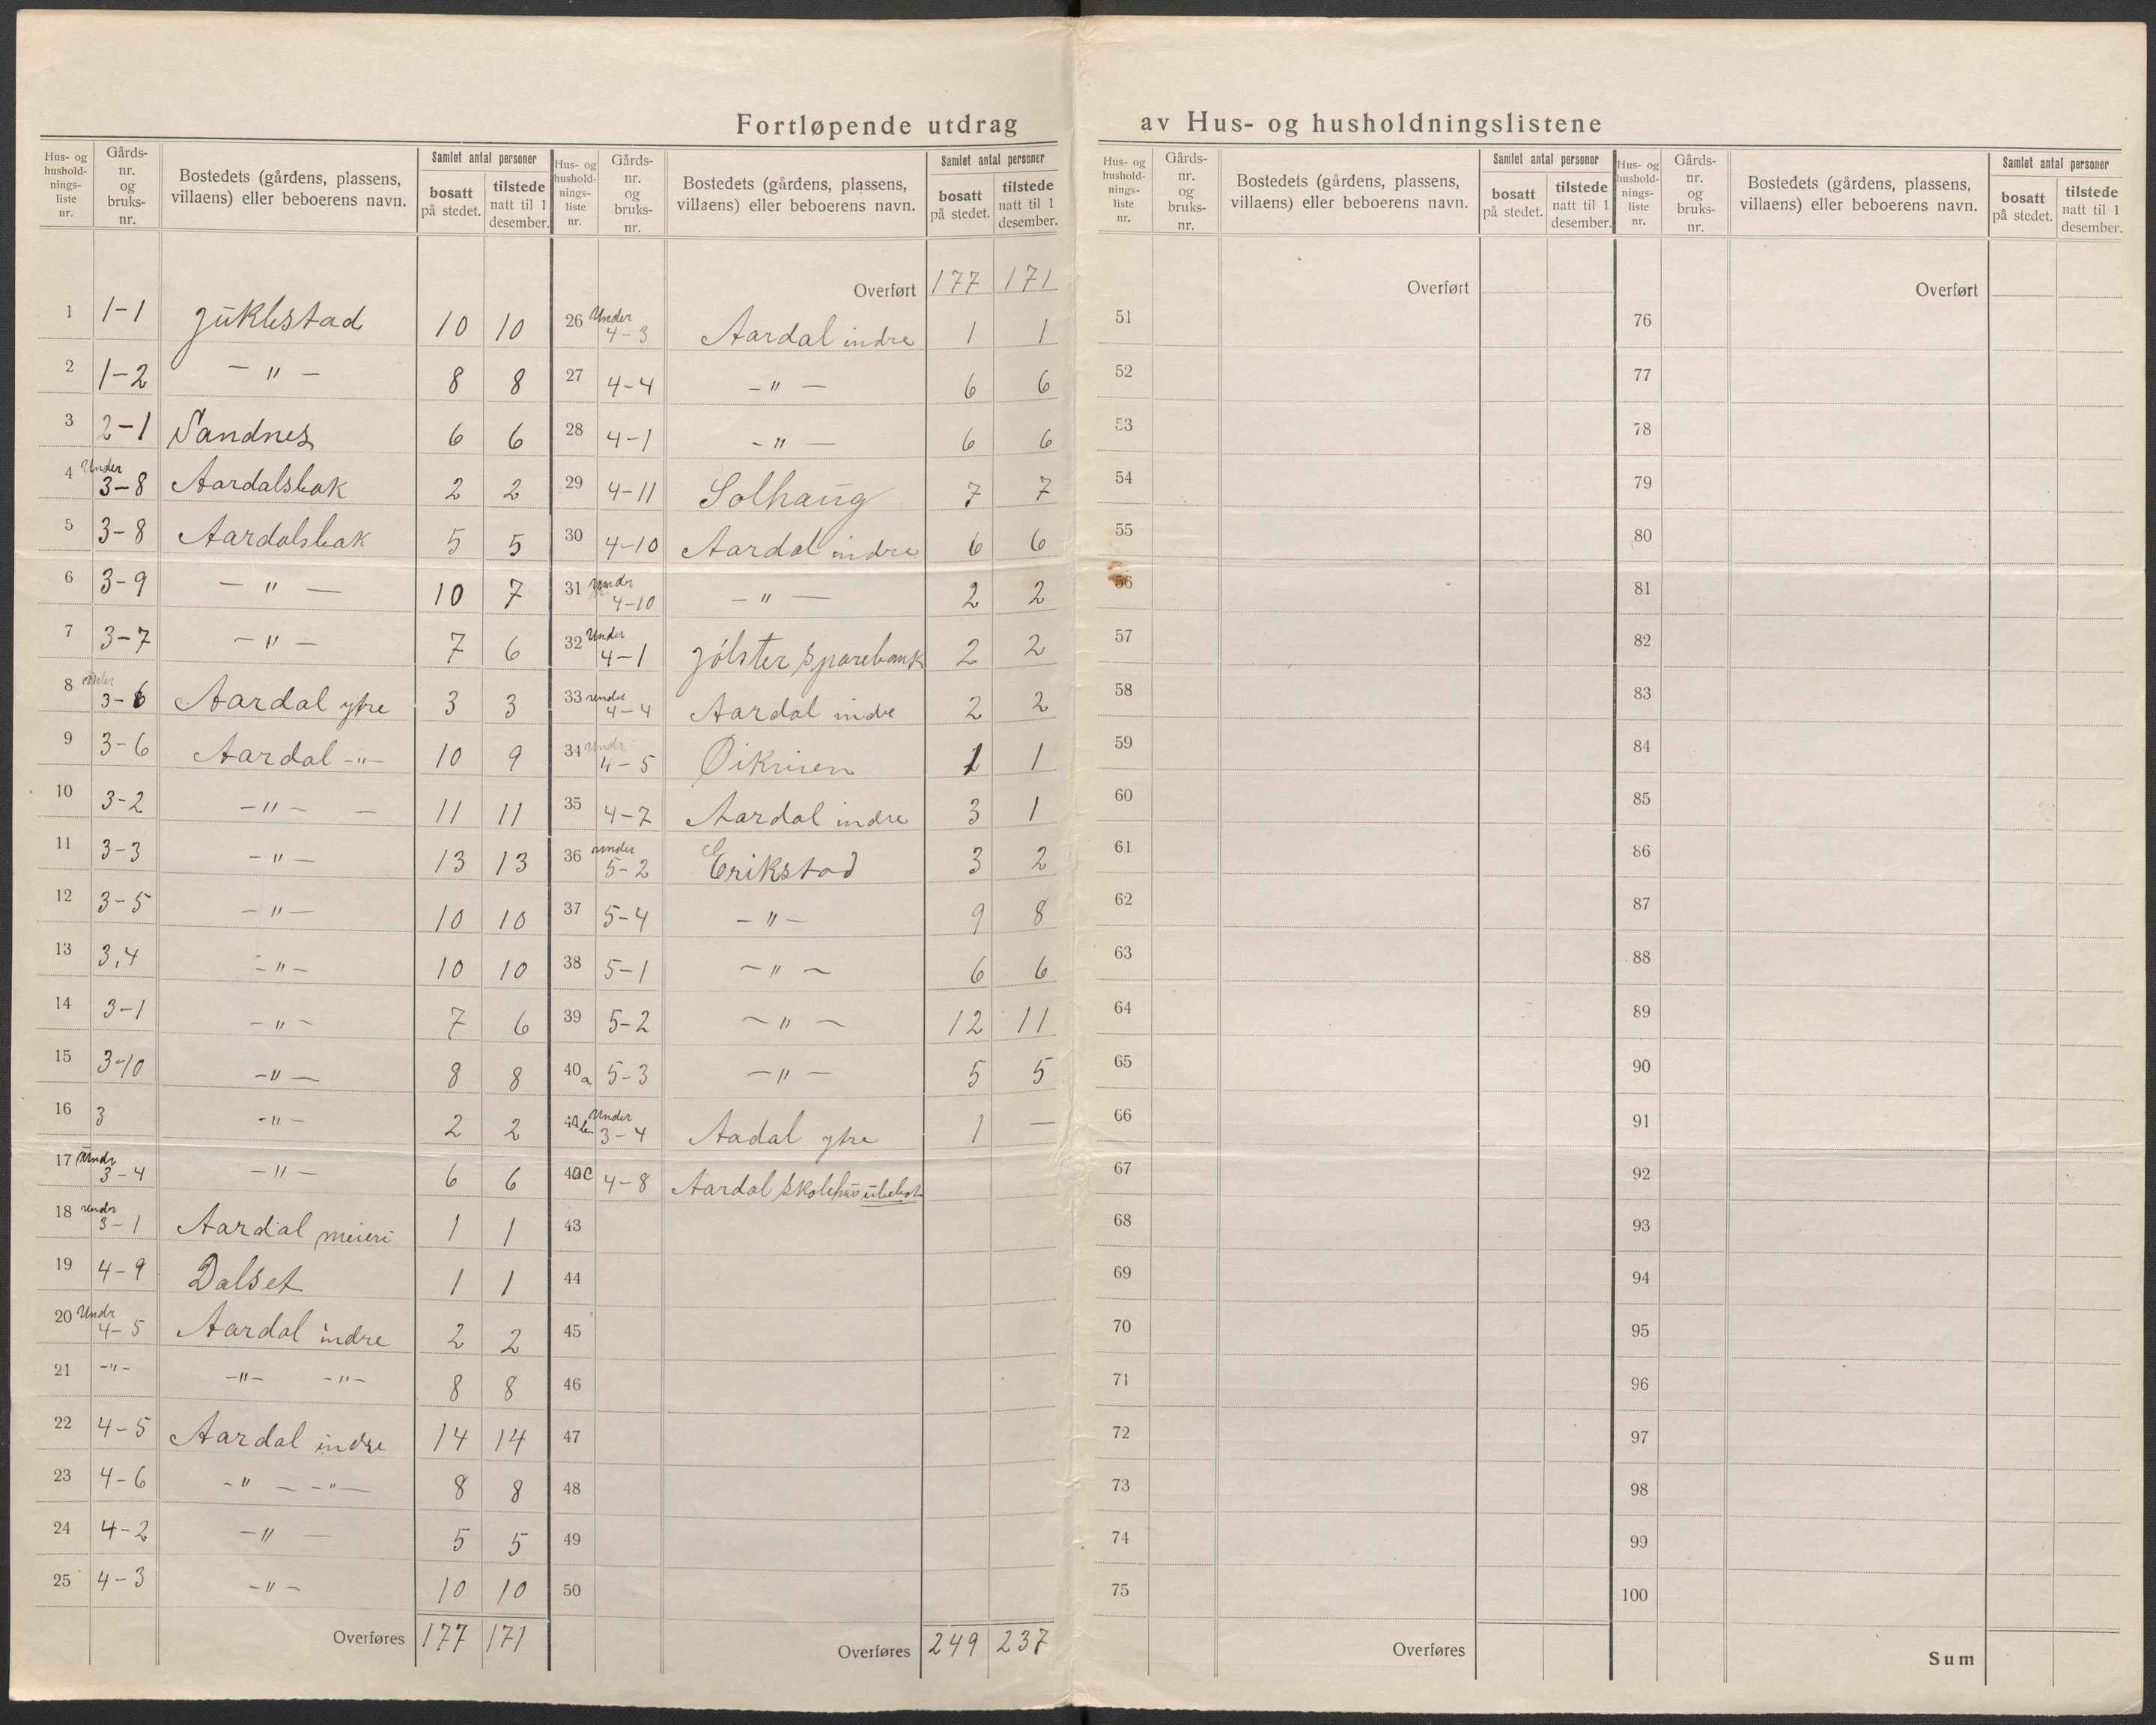 Fortløpende utdrag av Hus- og husholdningslistene
Hus- og hushold-nings-liste nr. Gårds-nr. og bruks-nr. Bostedets (gårdens, plassens, villaens) eller beboerens navn. Samlet antal personer bosatt på stedet. tilstede natt til 1 desember.
1 1-1 Juklestad 10 10
2 1-2 — " — 8 8
3 2-1 Sandnes 6 6
4 Under 3-8 Aardalsbak 2 2
5 3-8 Aardalsbak 5 5
6 3-9 — " — 10 7
7 3-7 — " — 7 6
8 under 3-6 Aardal ytre 3 3
9 3-6 Aardal -"- 10 9
10 3-2 — " — — 11 11
11 3-3 — " — 13 13
12 3-5 — " — 10 10
13 3,4 — " — 10 10
14 3-1 — " — 7 6
15 3-10 — " — 8 8
16 3 - " - 2 2
17 Undr 3-4 — " — 6 6
18 undr 3-1 Aardal meieri 1 1
19 4-9 Dalset 1 1
20 Undr 4-5 Aardal indre 2 2
21 -"- -"- -"- 8 8
22 4-5 Aardal indre 14 14
23 4-6 -" — -"— 8 8
24 4-2 — " — 5 5
25 4-3 — " — 10 10
Overføres 177 171
Hus- og hushold-nings-liste nr. Gårds-nr. og bruks-nr. Bostedets (gårdens, plassens, villaens) eller beboerens navn. Samlet antal personer bosatt på stedet. tilstede natt til 1 desember.
Overført 177 171
26 Under 4-3 Aardal indre 1 1
27 4-4 — " — 6 6
28 4-1 — " — 6 6
29 4-11 Solhaug 7 7
30 4-10 Aardal indre 6 6
31 under 4-10 — " — 2 2
32 Under 4-1 Jølster Sparebank 2 2
33 under 4-4 Aardal indre 2 2
34 Undr 4-5 1 1
35 4-7 Aardal indre 3 1
36 under 5-2 Erikstad 3 2
37 5-4 — " — 9 8
38 5-1 — " — 6 6
39 5-2 — " — 12 11
40a 5-3 — " — 5 5
Under 3-4 Aadal ytre 1 —
40c 4-8 Aardal Skolehus ubebot
43
44
45
46
47
48
49
50
Overføres 249 237
Hus- og hushold-nings-liste nr. Gårds-nr. og bruks-nr. Bostedets (gårdens, plassens, villaens) eller beboerens navn. Samlet antal personer bosatt på stedet. tilstede natt til 1 desember.
Overført
51
52
53
54
55
56
57
58
59
60
61
62
63
64
65
66
67
68
69
70
71
72
73
74
75
Overføres
Hus- og hushold-nings-liste nr. Gårds-nr. og bruks-nr. Bostedets (gårdens, plassens, villaens) eller beboerens navn. Samlet antal personer bosatt på stedet. tilstede natt til 1 desember.
Overført
76
77
78
79
80
81
82
83
84
85
86
87
88
89
90
91
92
93
94
95
96
97
98
99
100
Sum